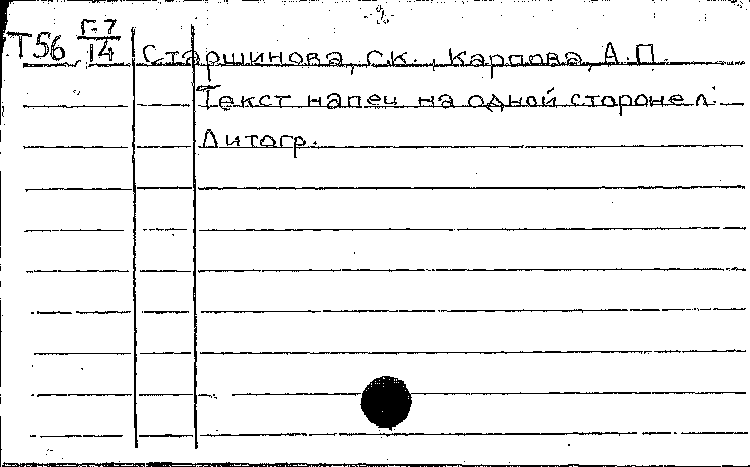 -2-
Т56 Г-7/14 Старшинова, С.К., Карпова, А.П.
Текст напеч на одной стороне л.
Литогр.